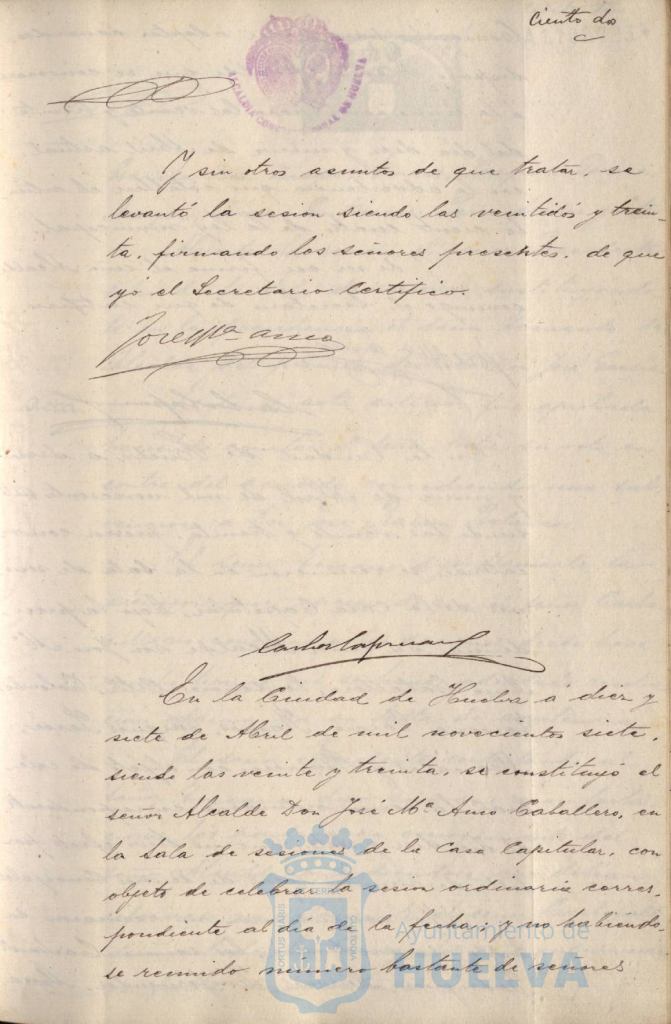 ciento dos
ALCALDIA CONSTITUCIONAL DE HUELVA
Y sin otros asuntos de que tratar, se
levantó la sesion siendo las veintidós y trein-
ta, firmando los señores presentes, de que
yo el Secretario certifico.
José Mª Amo
Carlos
En la Ciudad de Huelva á diez y
siete de Abril de mil novecientos siete,
siendo las veinte y treinta, se constituyó el
señor Alcalde Don José Mª Amo Caballero, en
la Sala de sesiones de la Casa Capitular, con
objeto de celebrar la sesion ordinaria corres-
pondiente al día de la fecha; y no habiendo-
se reunido número bastante de señores
Ayuntamiento de
HUELVA
PORTUS MARIS ET TERRE CUSTODIA